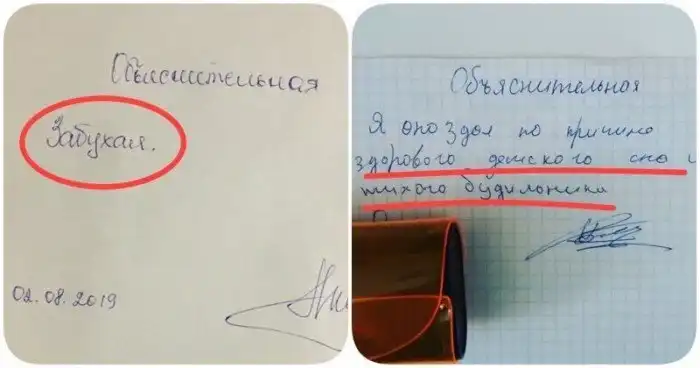 Объяснительная
Забухал.
02.08.2019
Объяснительная
Я опоздал по причине
здорового детского сна и
тихого будильника